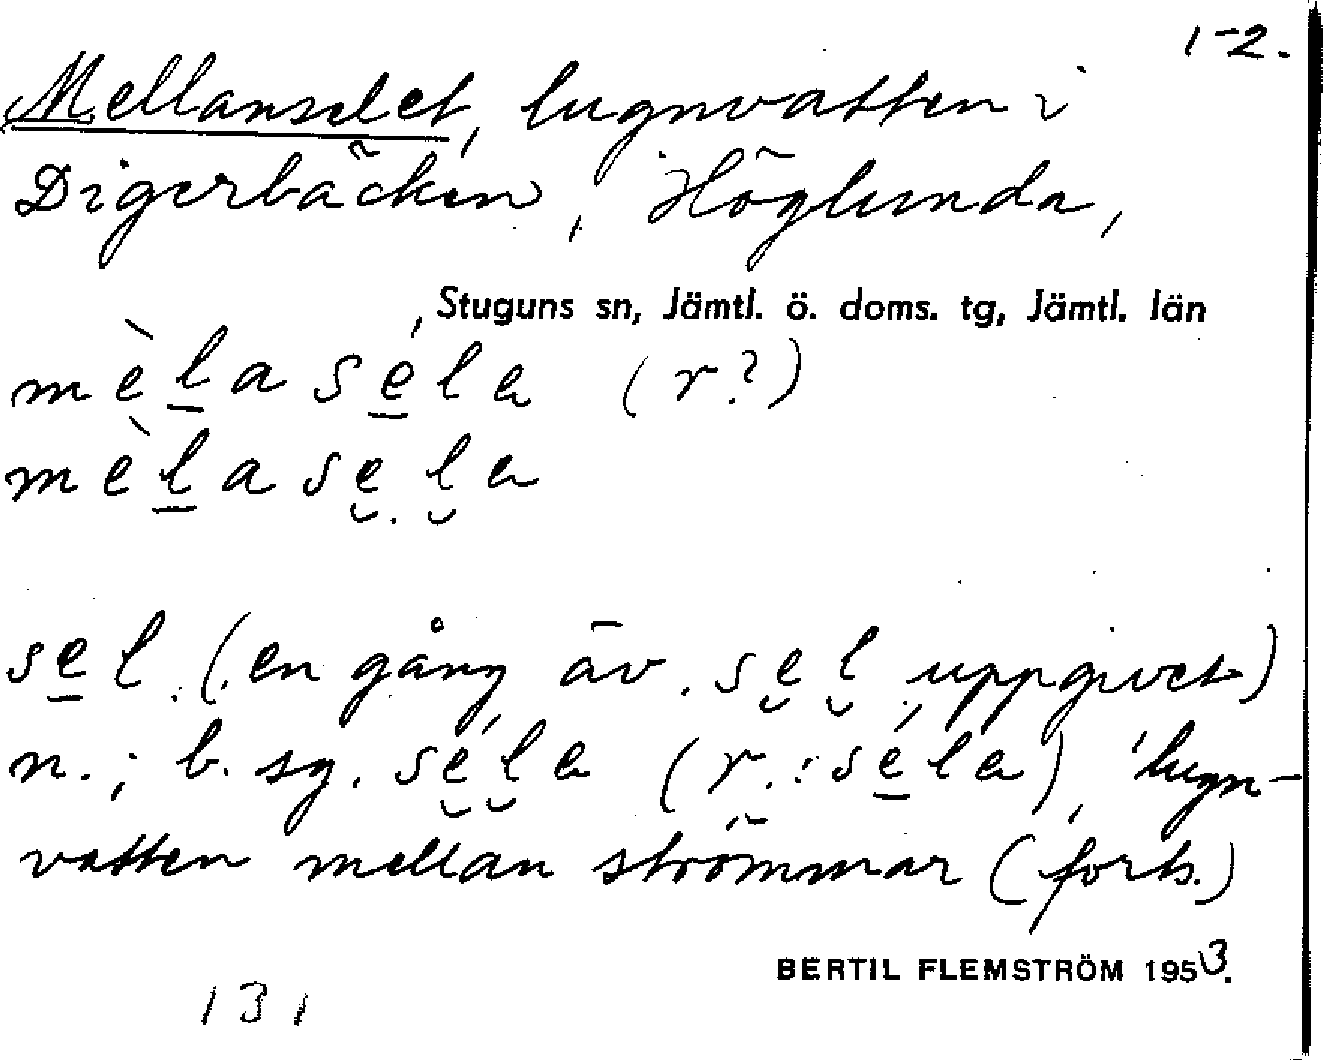 1-2.
Mellanselet, lugnvatten i
Digerbäcken, Höglunda,
Stuguns sn, Jämtl. ö. doms. tg, Jämtl. län
mè̀l̲ase̲̍la (r?)
mè̀l̲ase̮l̮a
se̲l (en gång äv. se̮l̮ uppgivet)
n.; b. sg. sé̮l̮a (r.: sé̲la), 'lugn-
vatten mellan strömmar (forts.)
BERTIL FLEMSTRÖM 1953.
131